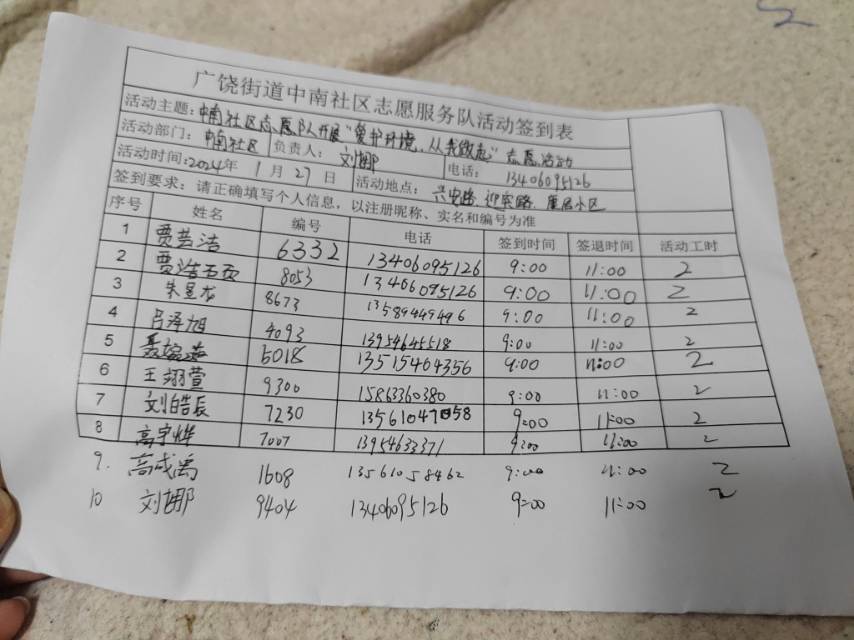 广饶街道中南社区志愿服务队活动签到表
活动主题：中南社区志愿队开展"爱护环境，从我做起"志愿活动
活动部门：中南社区 负责人：刘娜 电话：13406095126
活动时间：2024年1月27日 活动地点：兴安路 迎宾路 小区
签到要求：请正确填写个人信息，以注册昵称、实名和编号为准
序号 姓名 编号 电话 签到时间 签退时间 活动工时
1 贾芸洁 6332 13406095126 9:00 11:00 2
2 贾浩 8053 13406095126 9:00 11:00 2
3 朱昱龙 8673 13589449496 9:00 11:00 2
4 吕泽旭 4093 13954645518 9:00 11:00 2
5 5018 13515464356 9:00 11:00 2
6 王翔萱 9300 15863360380 9:00 11:00 2
7 刘皓辰 7230 13561047058 9:00 11:00 2
8 高宇烨 7007 13954633371 9:00 11:00 2
9. 高成禹 1608 13561058462 9:00 11:00 2
10 刘娜 9404 13406095126 9:00 11:00 2